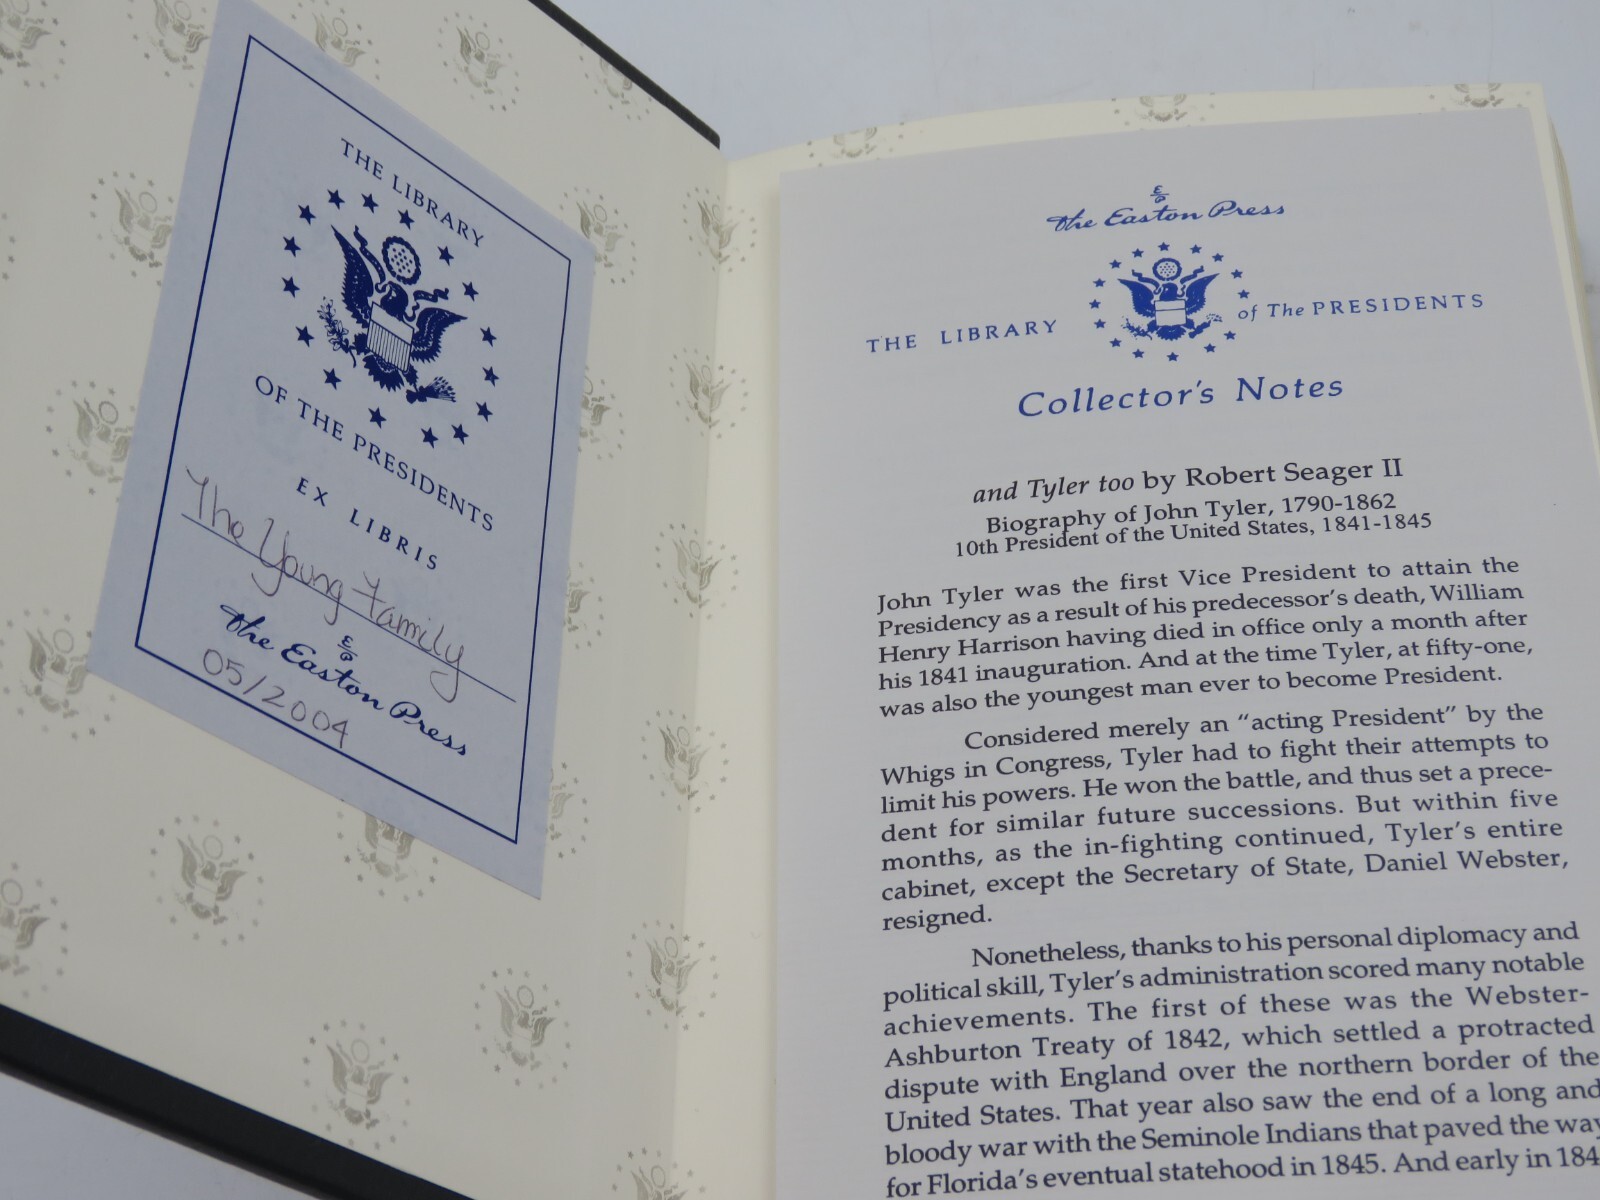 THE LIBRARY
OF THE PRESIDENTS
EX LIBRIS
The Young Family
The Easton Press
05/2004
The Easton Press
THE LIBRARY of The PRESIDENTS
Collector's Notes
and Tyler too by Robert Seager II
Biography of John Tyler, 1790-1862
10th President of the United States, 1841-1845
John Tyler was the first Vice President to attain the
Presidency as a result of his predecessor's death, William
Henry Harrison having died in office only a month after
his 1841 inauguration. And at the time Tyler, at fifty-one,
was also the youngest man ever to become President.
Considered merely an "acting President" by the
Whigs in Congress, Tyler had to fight their attempts to
limit his powers. He won the battle, and thus set a prece-
dent for similar future successions. But within five
months, as the in-fighting continued, Tyler's entire
cabinet, except the Secretary of State, Daniel Webster,
resigned.
Nonetheless, thanks to his personal diplomacy and
political skill, Tyler's administration scored many notable
achievements. The first of these was the Webster-
Ashburton Treaty of 1842, which settled a protracted
dispute with England over the northern border of the
United States. That year also saw the end of a long and
bloody war with the Seminole Indians that paved the way
for Florida's eventual statehood in 1845. And early in 184